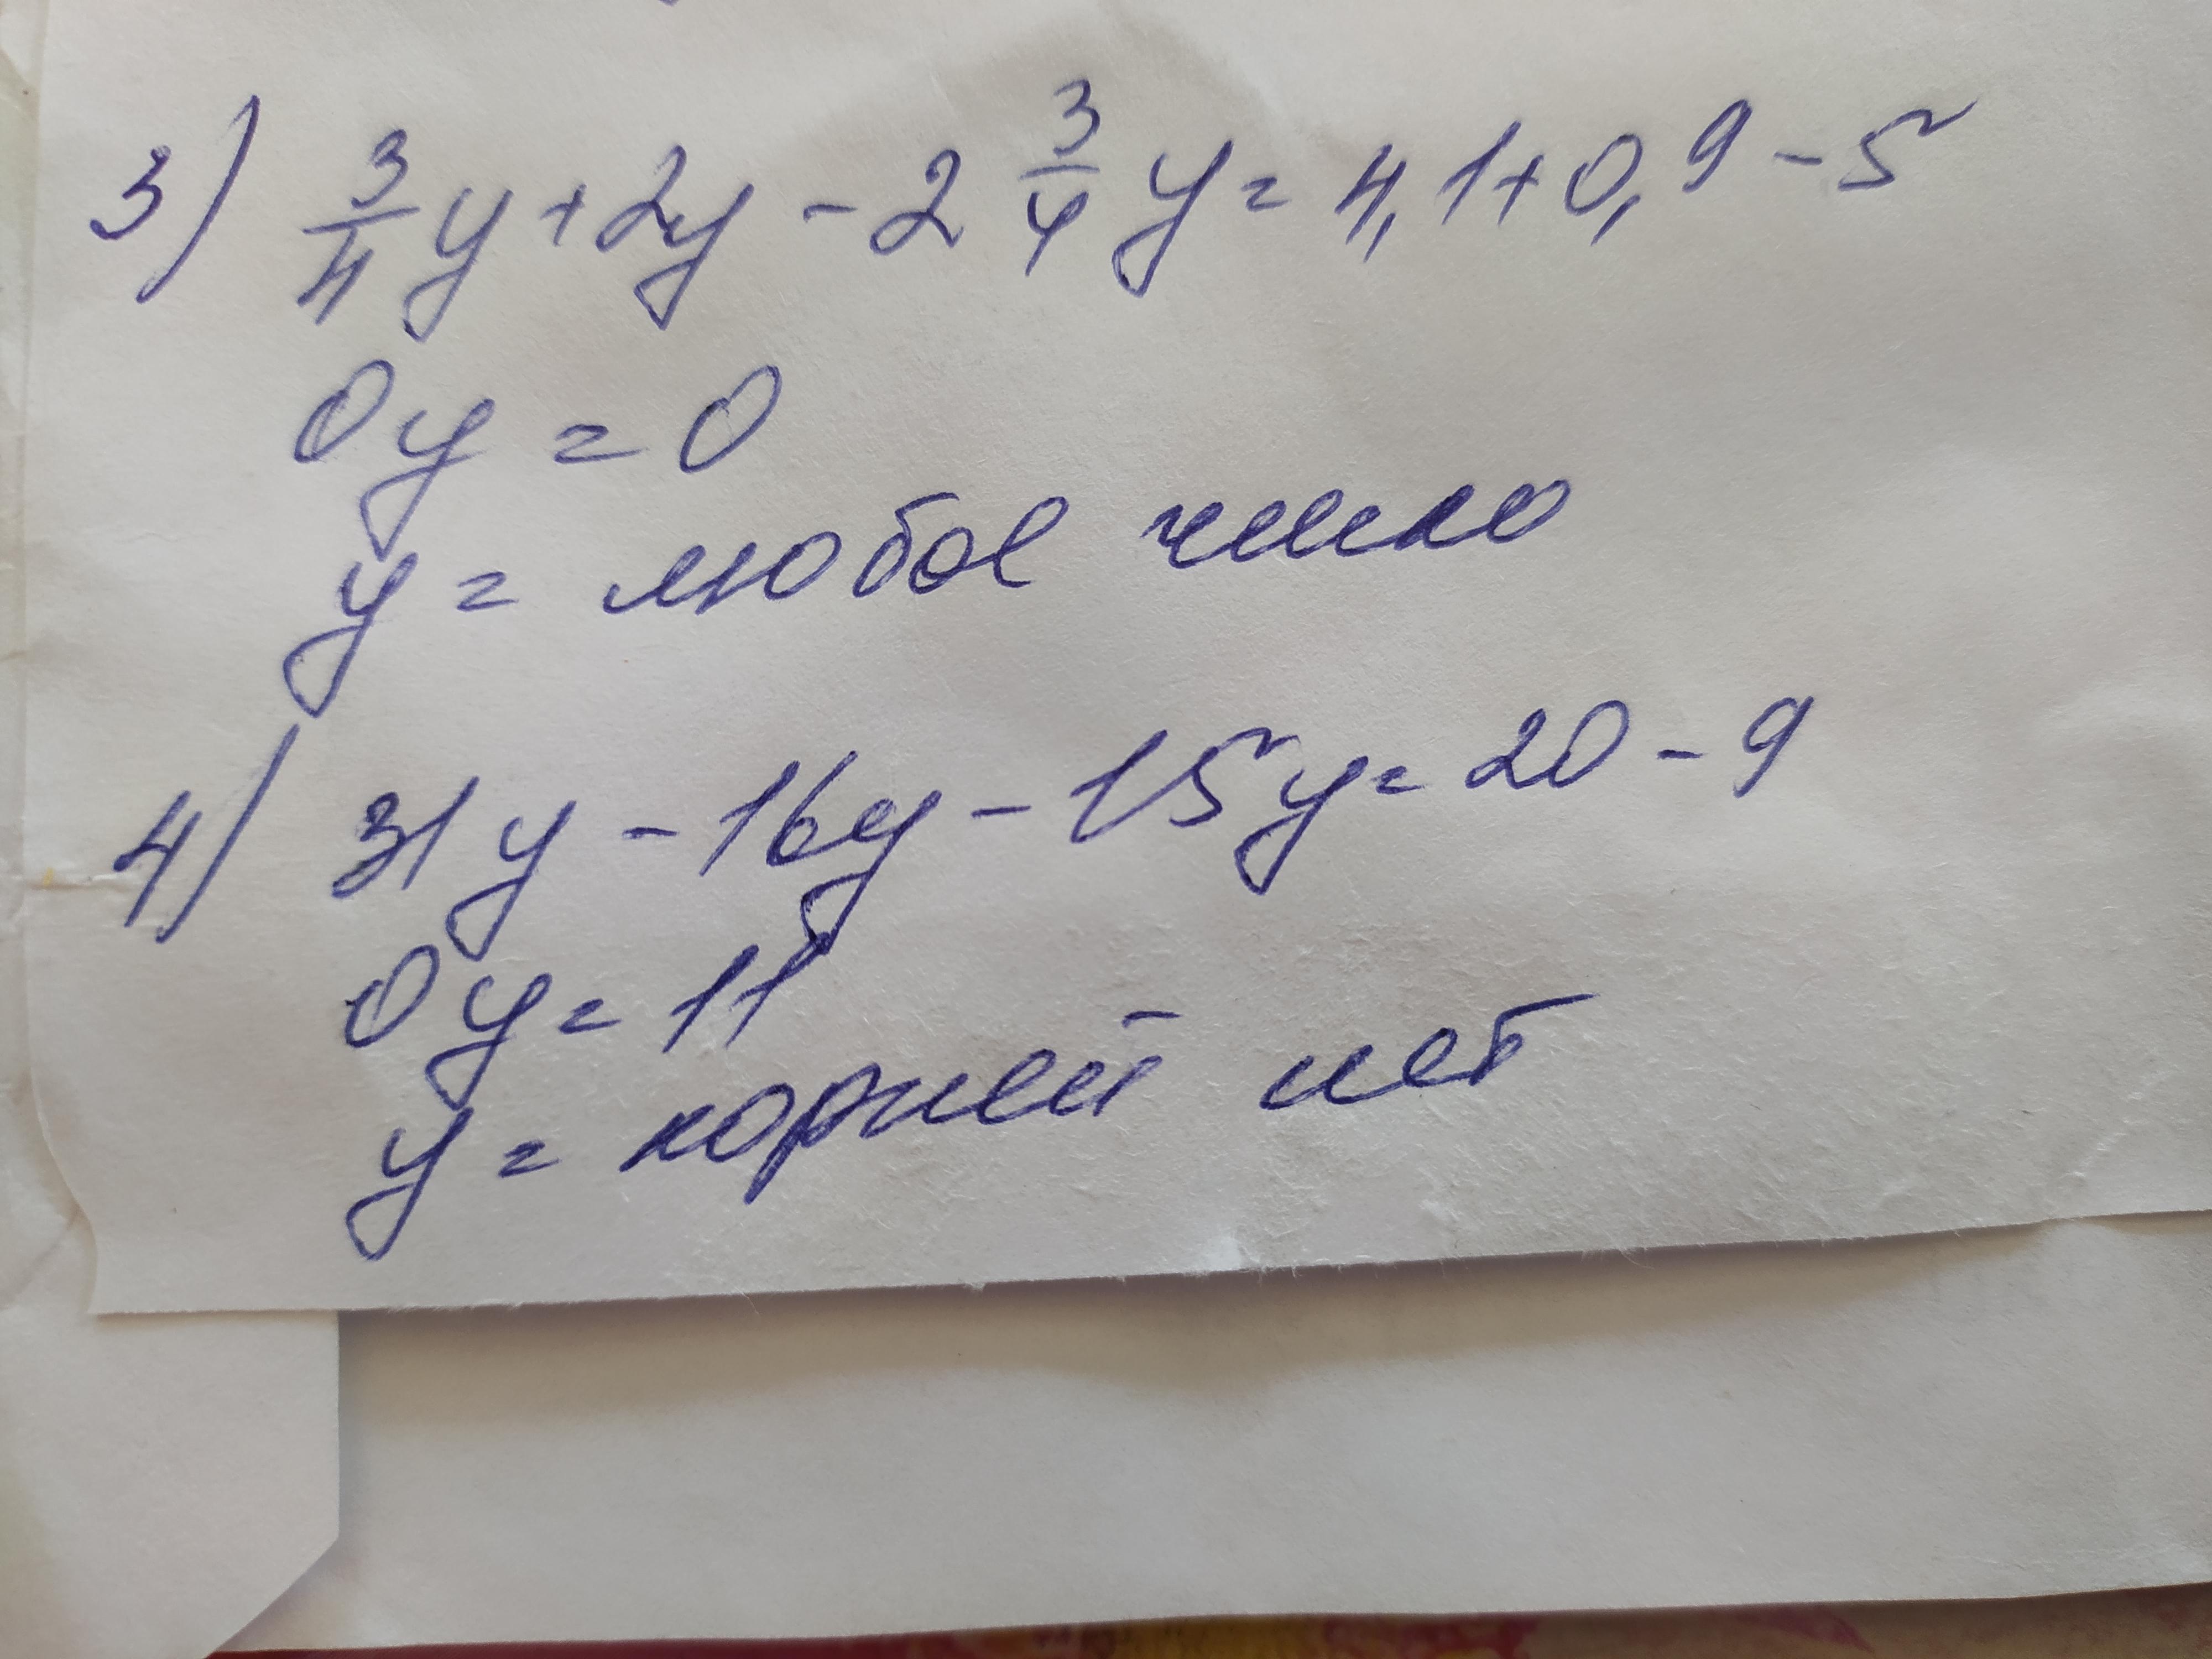 3) 3/4 y + 2y - 2 3/4 y = 4,1 + 0,9 - 5
0y = 0
y = любое число
4) 31y - 16y - 15y = 20 - 9
0y = 11
y = корней нет